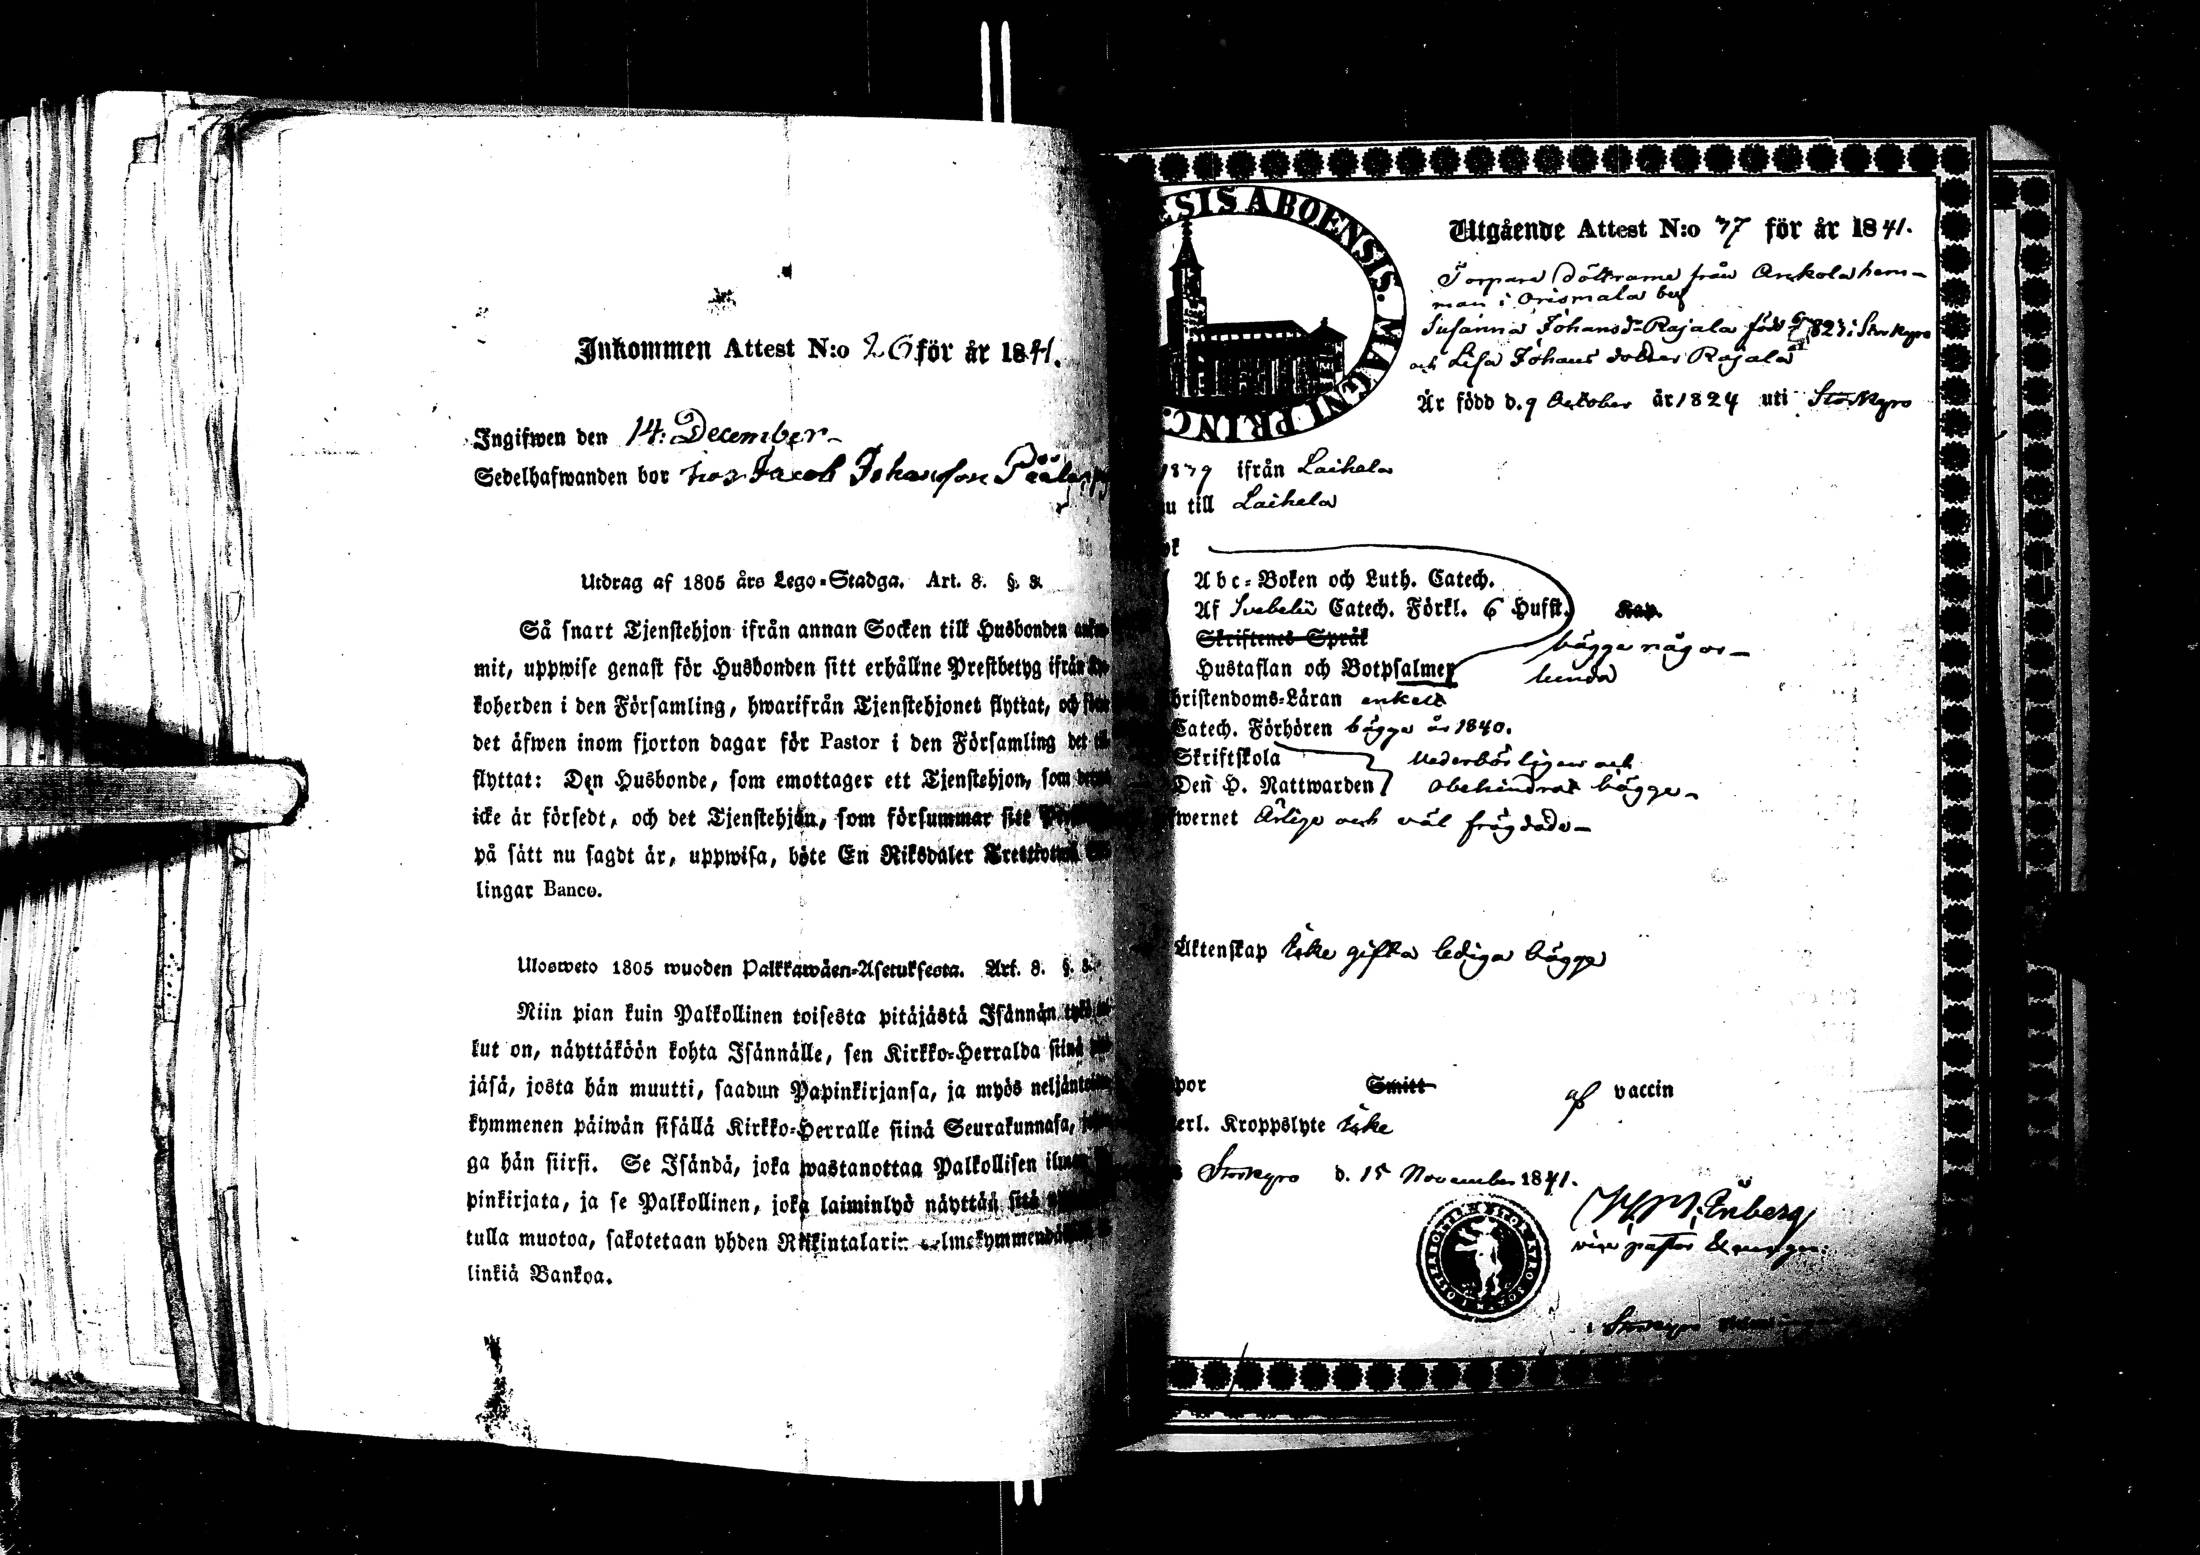 Inkommen Attest N:o 26 för år 1841.
Ingifwen den 14: December
Sedelhafwanden bor hos Jacob Johansson
Utdrag af 1805 års Lego-Stadga. Art. 8. §. 8.
Så snart Tjenstehjon ifrån annan Socken till Husbonden
mit, uppwise genast för Husbonden sitt erhållne Prestbetyg ifrån
koherden i den Församling, hwarifrån Tjenstehjonet flyttat, och
det äfwen inom fjorton dagar för Pastor i den Församling det
flyttat: Den Husbonde, som emottager ett Tjenstehjon, som
icke är försedt, och det Tjenstehjon, som försummar sitt
på sätt nu sagdt är, uppwisa, böte En Riksdaler
lingar Banco.
Ulosweto 1805 wuoden Palkkawäen-Asetuksesta. Art. 8. §. 8.
Niin pian kuin Palkollinen toisesta pitäjästä Isännän
kut on, näyttäköön kohta Isännälle, sen Kirkko-Herralda siinä
jäsä, josta hän muutti, saadun Papinkirjansa, ja myös
kymmenen päiwän sisällä Kirkko-Herralle siinä Seurakunnasa,
ga hän siirsi. Se Isändä, joka wastanottaa Palkollisen ilman
pinkirjata, ja se Palkollinen, joka laiminlyö näyttää sitä
tulla muotoa, sakotetaan yhden Riikintalarin
linkiä Bankoa.
ESIS ABOENSIS. MAGNI PRINC.
Utgående Attest N:o 77 för år 1841.
Torpare döttrarne från Orrkola hem-
man i Orismala by
Susanna Johansd:r Rajala född 1823 i Storkyro
och Lisa Johans dotter Rajala
Är född d. 9 October år 1824 uti Storkyro
1839 ifrån Laihela
u till Laihela
ok
Abc-Boken och Luth. Catech.
Af Svebelii Catech. Förkl. 6 Hufst. Kap.
Skriftenes Språk
bägge någor-
Hustaflan och Botpsalmer
lunda
hristendoms-Läran enkelt
Catech. Förhören bägge år 1840.
Skriftskola
Vederbörligen och
Den H. Nattwarden
obehindrat bägge
fwernet Ärliga och väl frägdade
Äktenskap Icke gifta lediga bägge
por Smitt af vaccin
erl. Kroppslyte Icke
Storkyro d. 15 November 1841.
Enberg
vice pastor
i Storkyro